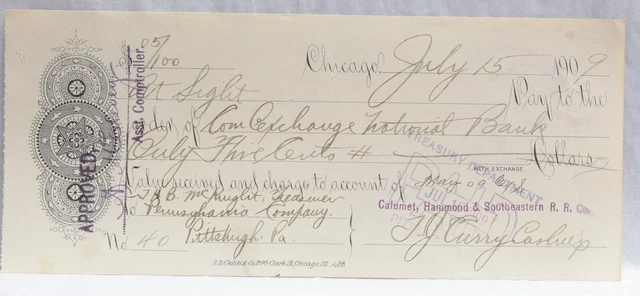 05/100
Chicago, July 15 1909
At Sight Pay to the
Order of Corn Exchange National Bank
Only Five Cents Dollars
WITH EXCHANGE
TREASURY DEPARTMENT
Value received and charge to account of May 09
Calumet, Hammond & Southeastern R. R. Co.
To B. McKnight, Treasurer
Pennsylvania Company.
No. 40 Pittsburgh, Pa.
T. J. Curry Cashier
S.D. Childs & Co. Clark St., Chicago, Ill.
APPROVED
Asst. Comptroller